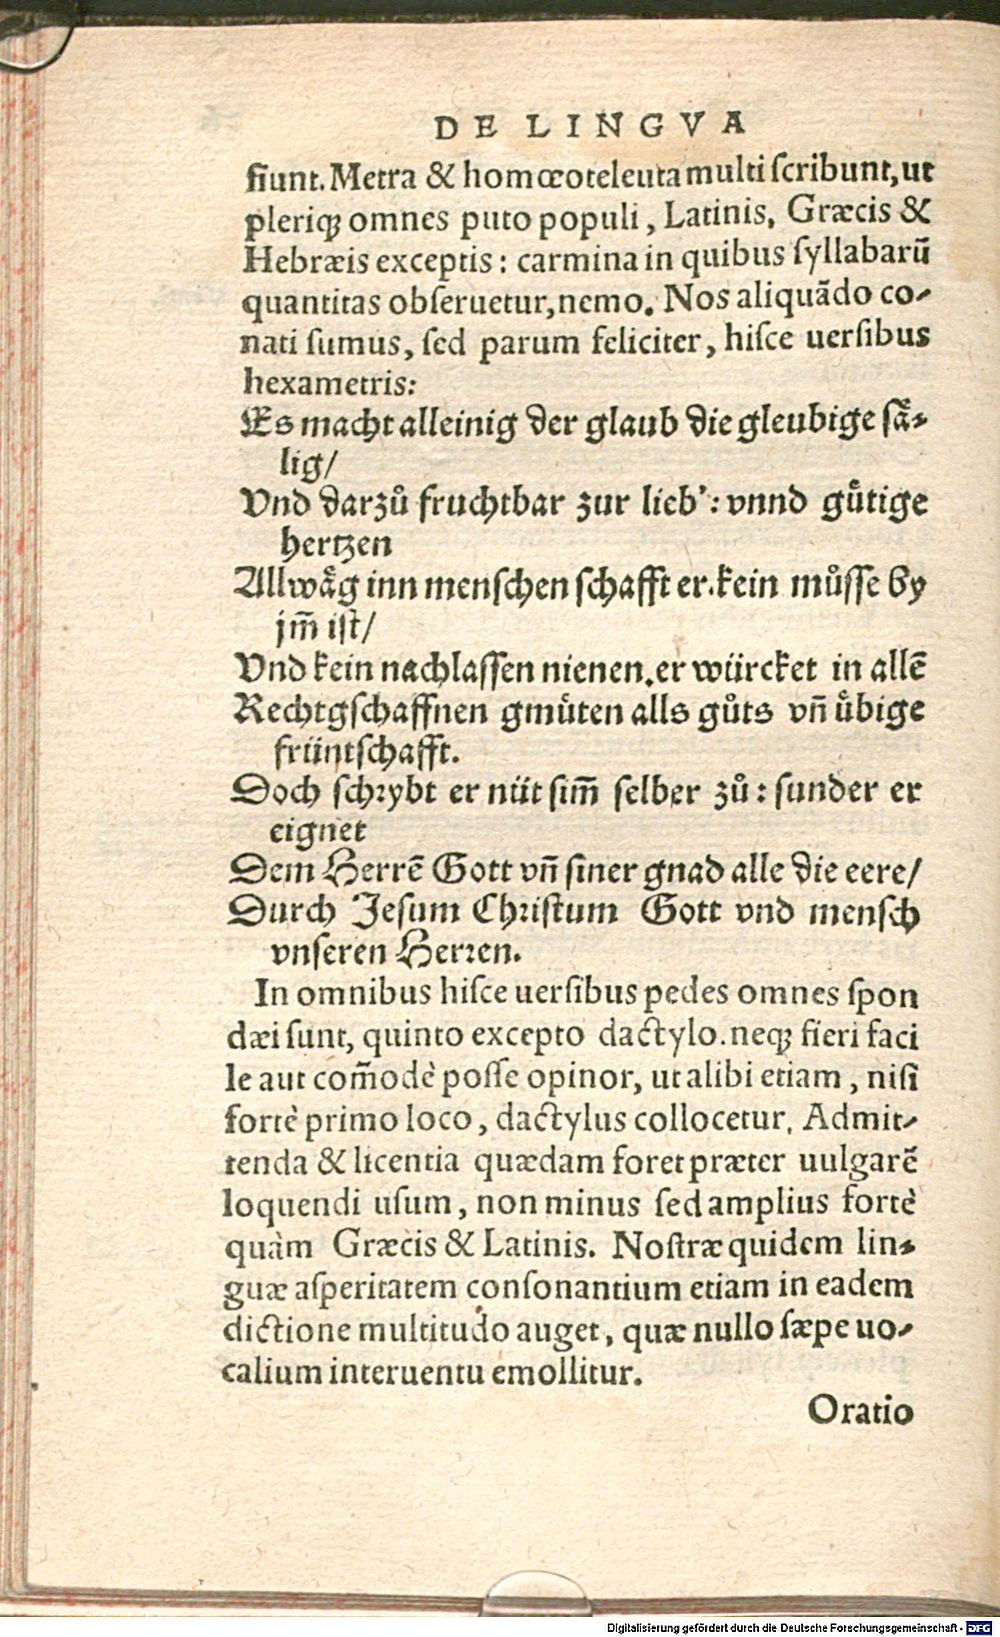 DE LINGVA
fiunt. Metra & homœoteleuta multi ſcribunt, ut
pleriq; omnes puto populi, Latinis, Græcis &
Hebræis exceptis: carmina in quibus ſyllabarū
quantitas obſeruetur, nemo. Nos aliquādo co-
nati ſumus, ſed parum feliciter, hiſce uerſibus
hexametris:
Es macht alleinig der glaub die gleubige ſaͤ-
lig/
Vnd darzuͦ fruchtbar zur lieb': vnnd guͤtige
hertzen
Allwaͤg inn menſchen ſchafft er. kein muͦſſe by
jm̄ iſt/
Vnd kein nachlaſſen nienen. er würcket in allē
Rechtgſchaffnen gmuͤten alls guͦts vn̄ uͤbige
früntſchafft.
Doch ſchꝛybt er nüt ſim̄ ſelber zuͦ: ſunder er
eignet
Dem Herrē Gott vn̄ ſiner gnad alle die eere/
Durch Jeſum Chꝛiſtum Gott vnd menſch
vnſeren Herꝛen.
In omnibus hiſce uerſibus pedes omnes ſpon
dæi ſunt, quinto excepto dactylo. neq; fieri faci
le aut com̄odè poſſe opinor, ut alibi etiam, niſi
fortè primo loco, dactylus collocetur. Admit-
tenda & licentia quædam foret præter uulgarē
loquendi uſum, non minus ſed amplius fortè
quàm Græcis & Latinis. Noſtræ quidem lin-
guæ aſperitatem conſonantium etiam in eadem
dictione multitudo auget, quæ nullo ſæpe uo-
calium interuentu emollitur.
Oratio
Digitalisierung gefördert durch die Deutsche Forschungsgemeinschaft - DFG